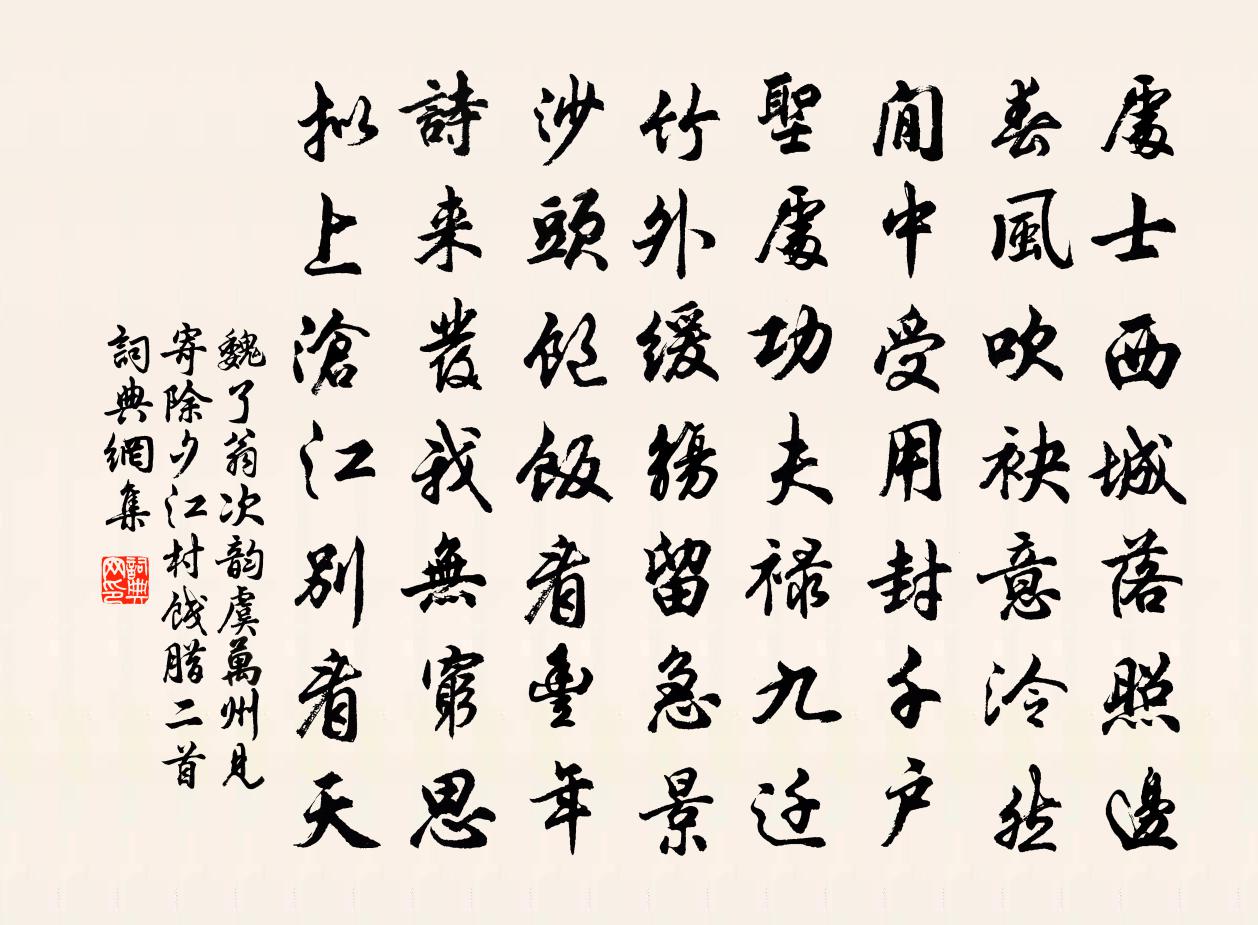 處士西城落照邊
春風吹袂意泠然
閒中受用封千户
聖處功夫禄九迁
竹外緩觴留急景
沙頭飽飯看豐年
詩来發我無窮思
拟上滄江别看天
魏了翁次韵虞萬州見
寄除夕江村餞腊二首
詞典網集
詞典
网印